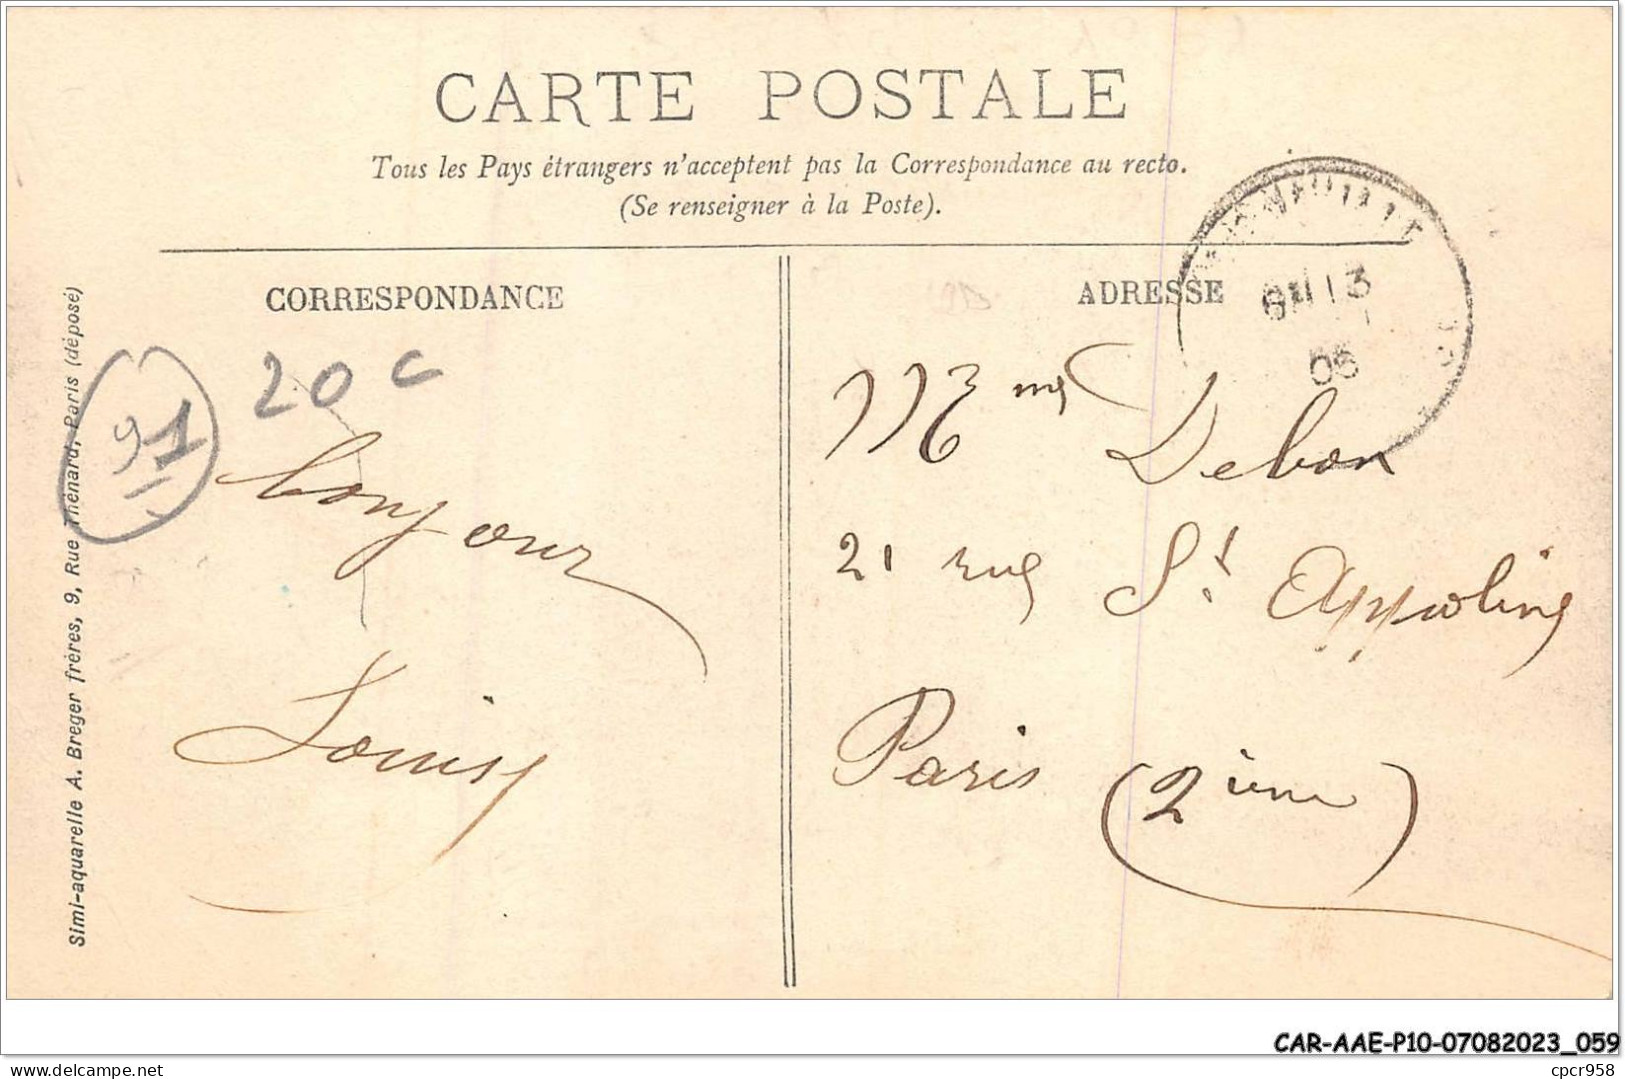 CARTE POSTALE
Tous les Pays étrangers n'acceptent pas la Correspondance au recto.
(Se renseigner à la Poste).
CORRESPONDANCE
ADRESSE
13
06
20 c
91
bonjour
Louise
Mme Debon
21 rue St Appoline
Paris (2ième)
Simi-aquarelle A. Breger frères, 9, Rue Thénard, Paris (déposé)
CAR-AAE-P10-07082023_059
delcampe.net
cpcr958